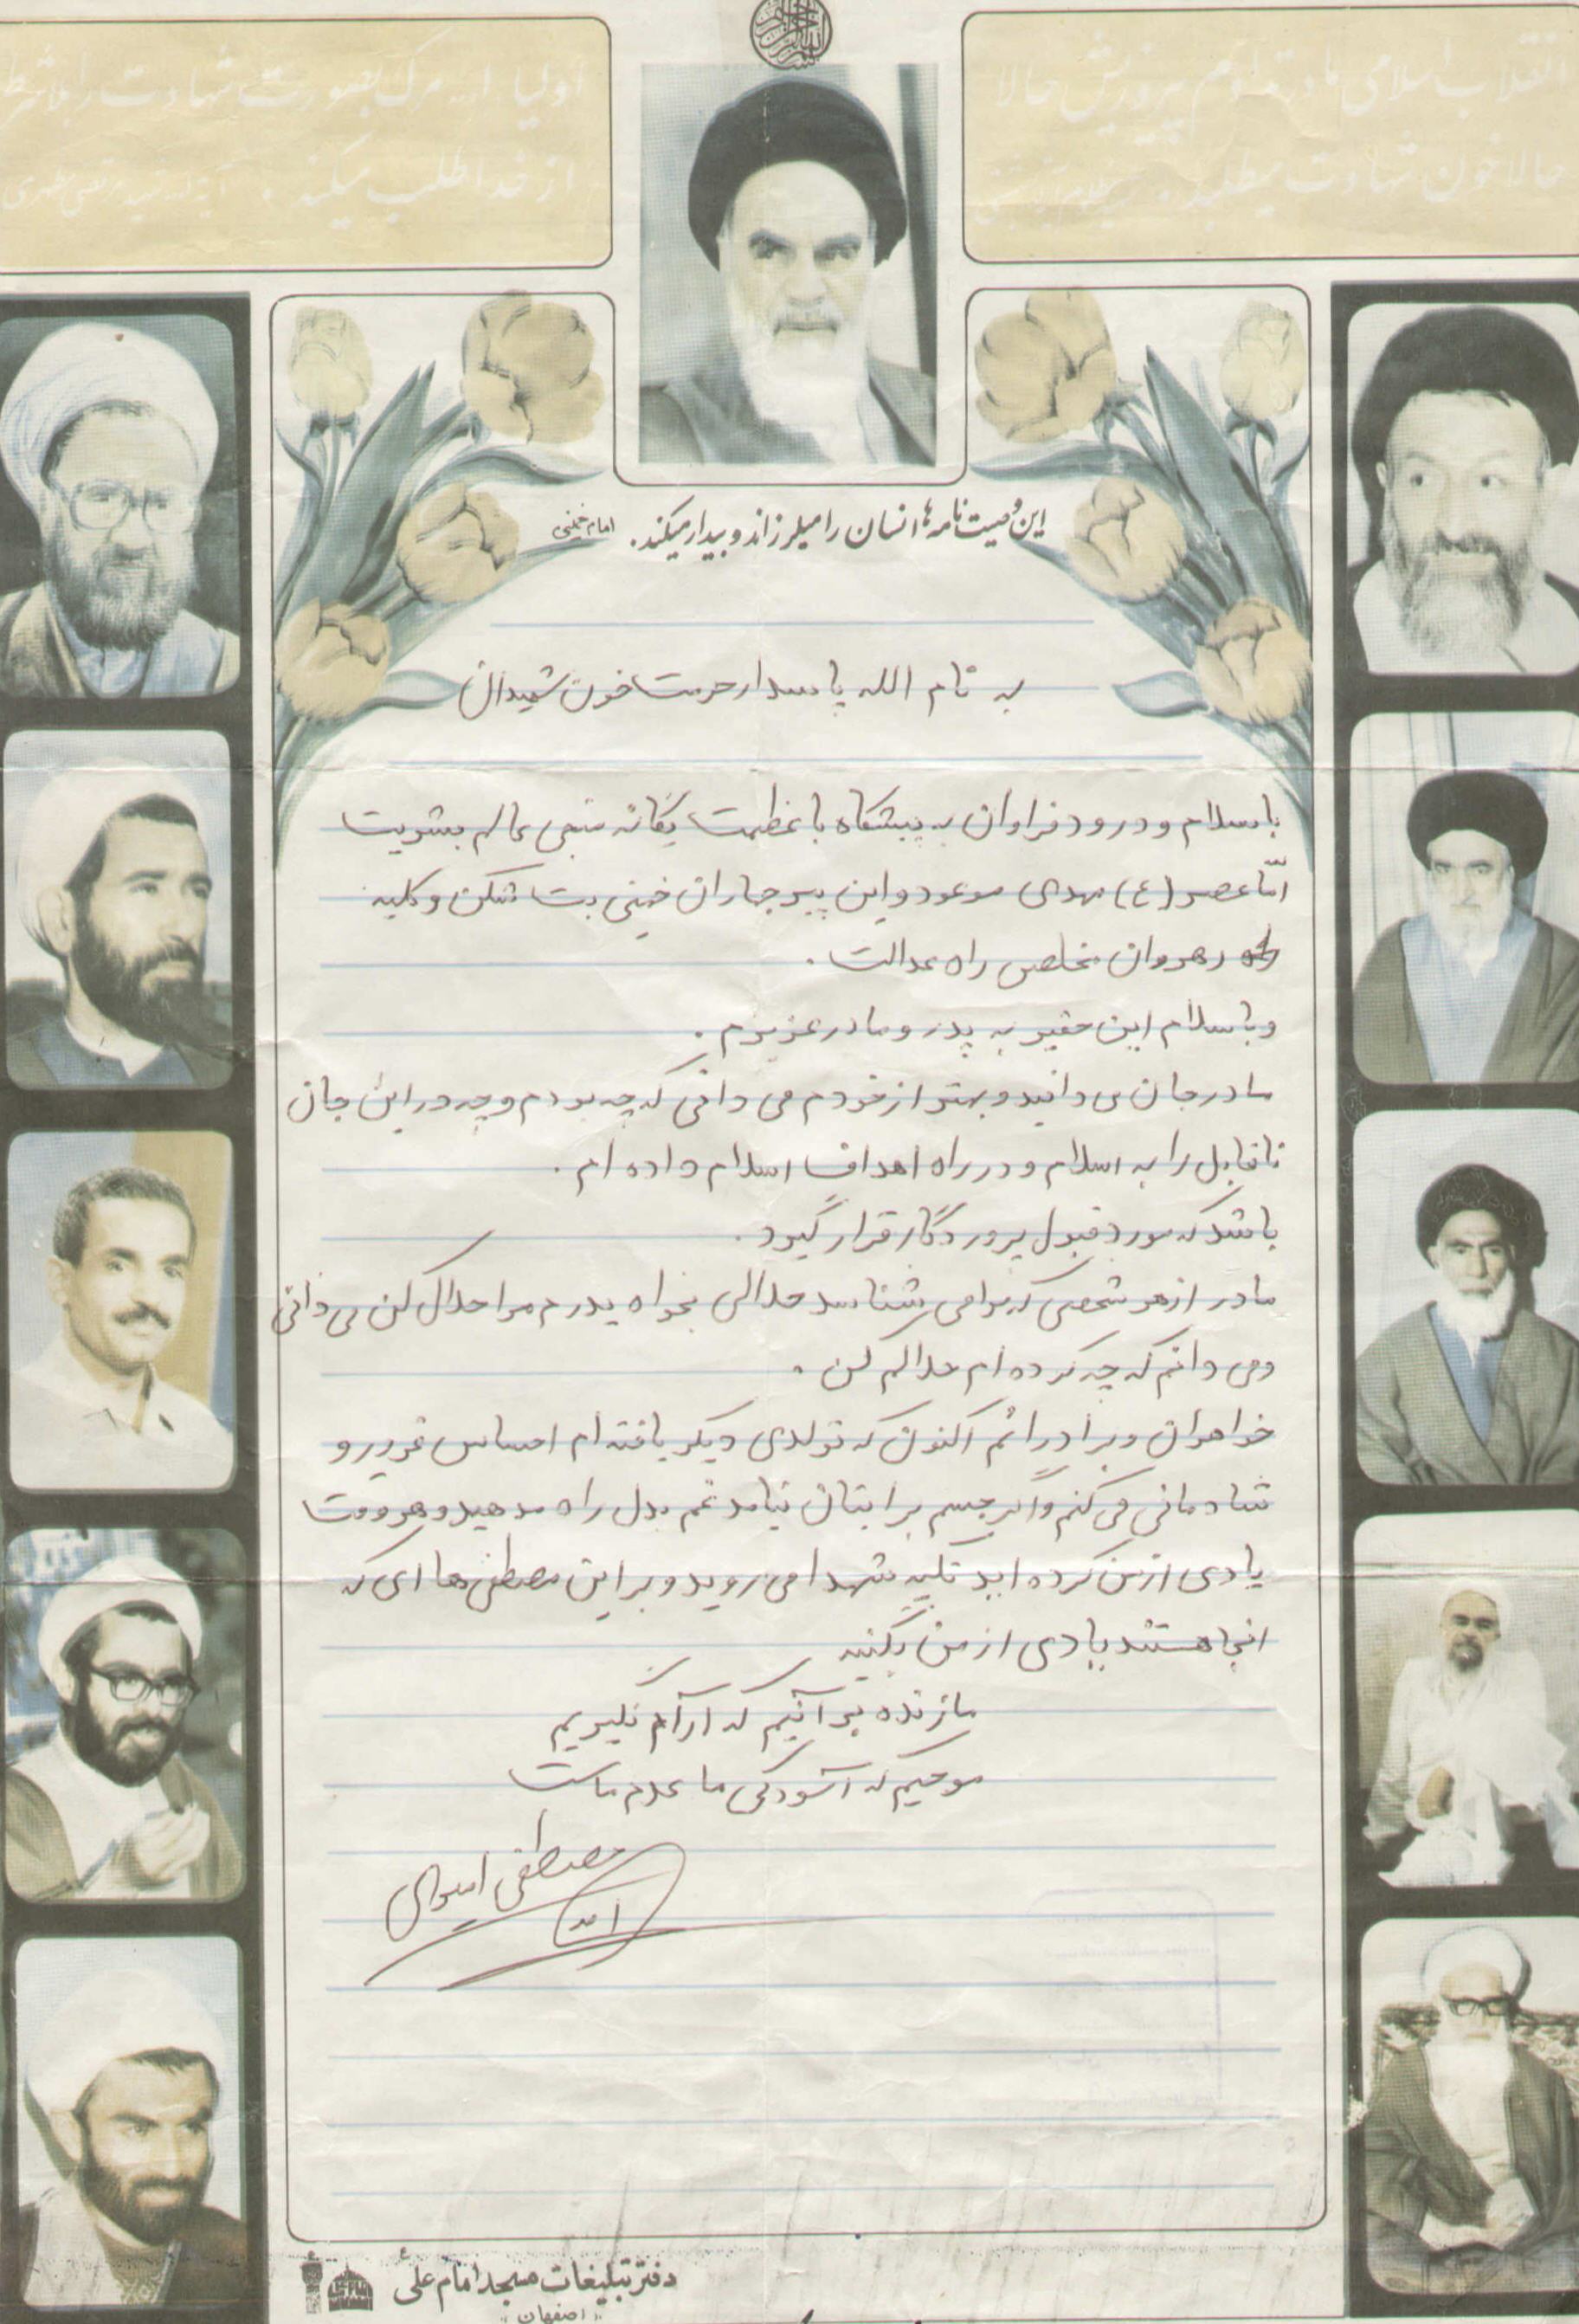 انقلاب اسلامی ما در تداوم پرورش حالا
حالا خون شهادت میطلبد.
اولیاء الله مرگ بصورت شهادت را
از خدا طلب میکنند.
این وصیت نامه‌ها انسان را میلرزاند و بیدار میکند. امام خمینی
به نام الله پاسدار حرمت خون شهیدان
با سلام و درود فراوان به پیشگاه با عظمت یگانه منجی عالم بشریت
امّا عصر (ع) مهدی موعود و این پیر جماران خمینی بت شکن و کلیه
رهروان مخلص راه عدالت.
و با سلام این حقیر به پدر و مادر عزیزم.
مادر جان می دانید و بهتر از خودم می دانی که چه بودم و چه در این جان
ناقابل را به اسلام و در راه اهداف اسلام داده ام.
باشد که مورد قبول پروردگار قرار گیرد.
مادر از هر شخصی که مرا می شناسد حلالی بخواه پدرم مرا حلال کن می دانی
و می دانم که چه کرده ام حلالم کن.
خواهران و برادرانم اکنون که تولدی دیگر یافته ام احساس غرور و
شادمانی می کنم و اگر جسم برایتان نیامد غم بدل راه مدهید و هر وقت
یادی از من کرده اید تکیه شهدا می روید و بر این مصطفی ها ای که
انجا هستند یادی از من بکنید
ما زنده بر آنیم که آرام نگیریم
موجیم که آسودگی ما عدم ماست
مصطفی
دفتر تبلیغات مسجد امام علی ع
اصفهان